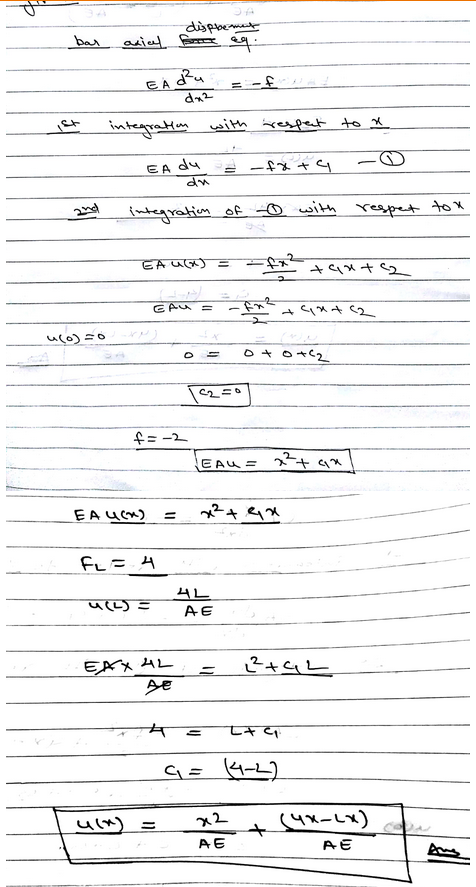 dispbemet
bar axial eq.
EA d²u/dx² = -f
1st integration with respect to x
EA du/dx = -fx + c₁ —①
2nd integration of -① with respect to x
EA u(x) = -fx²/2 + c₁x + c₂
EAu = -fx²/2 + c₁x + c₂
u(0)=0
0 = 0+0+c₂
c₂=0
f=-2
EAu = x² + c₁x
EA u(x) = x² + c₁x
FL = 4
u(L) = 4L/AE
EA x 4L/AE = L² + c₁L
4 = L + c₁
c₁ = (4-L)
u(x) = x2/AE + (4x-Lx)/AE
Ans